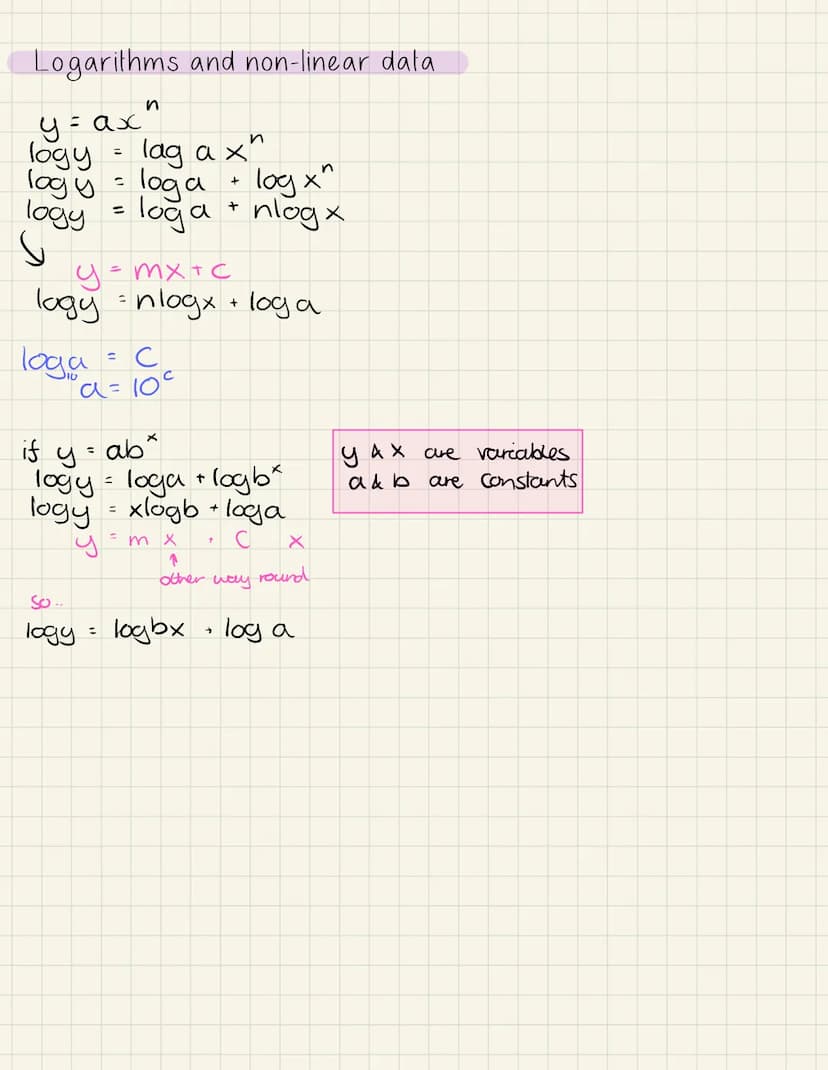 Logarithms and non-linear data
y = axⁿ
logy = lag a xⁿ
logy = loga + log xⁿ
logy = loga + nlogx
↓
y = mx + c
logy = nlogx + loga
log₁₀a = C
a = 10ᶜ
if y = abˣ
logy = loga + logbˣ
logy = xlogb + loga
y = m x + C x
↑
other way round
so..
logy = logbx + log a
y & x are variables
a & b are constants